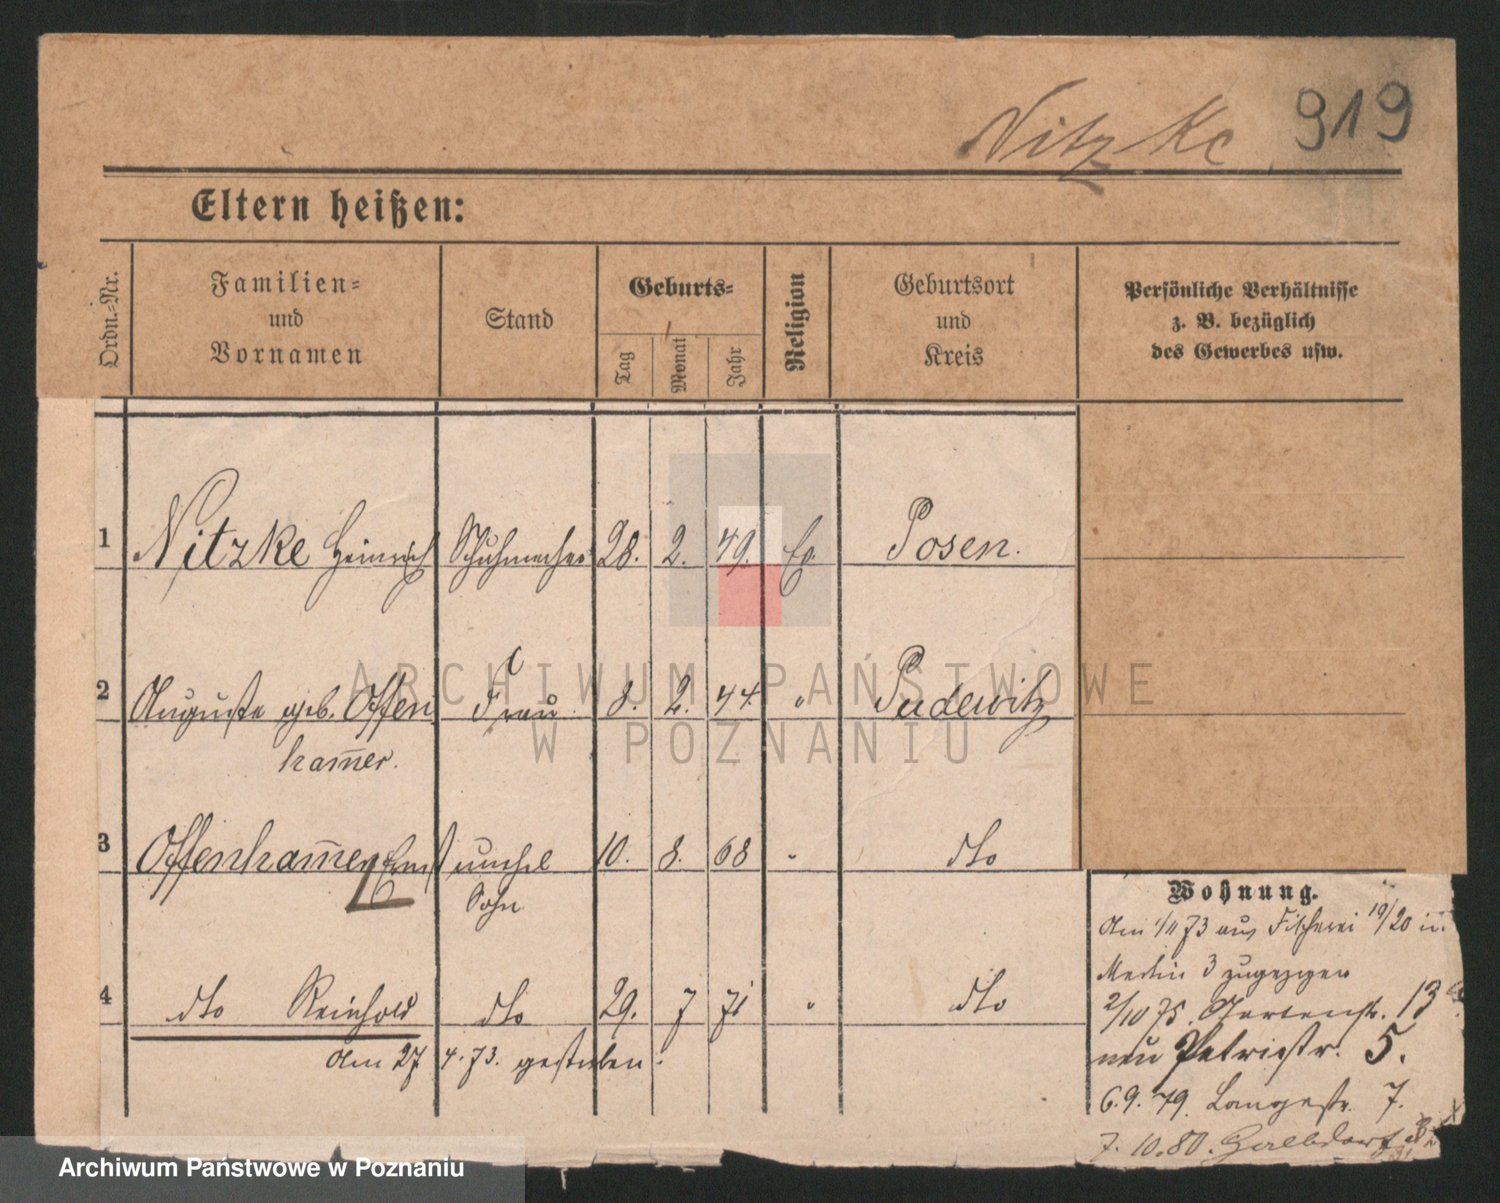 Nitzke 919
Eltern heißen:
Ordn.-Nr.
Familien-
und
Vornamen
Stand
Geburts-
Tag
Monat
Jahr
Religion
Geburtsort
und
Kreis
Persönliche Verhältnisse
z. B. bezüglich
des Gewerbes usw.
1 Nitzke Heinrich Schuhmacher 28. 2. 49. Ev. Posen.
2 Auguste geb. Offen Frau 8. 2. 44. " Pudewitz
ham̅er.
3 Offenham̅er Ernst unehel 10. 8. 68 " dto
Sohn
4 dto Reinhold dto 29. 7 71 " dto
Am 27 4. 73. gestorben.
Wohnung.
Am 1/11 73 aus Fischerei 19/20 in
Martin 3 zugezogen
2/10 75. Gartenstr. 13
neu Petristr. 5.
6.9.79. Langestr. 7.
7.10.80.
ARCHIWUM PAŃSTWOWE
W POZNANIU
Archiwum Państwowe w Poznaniu